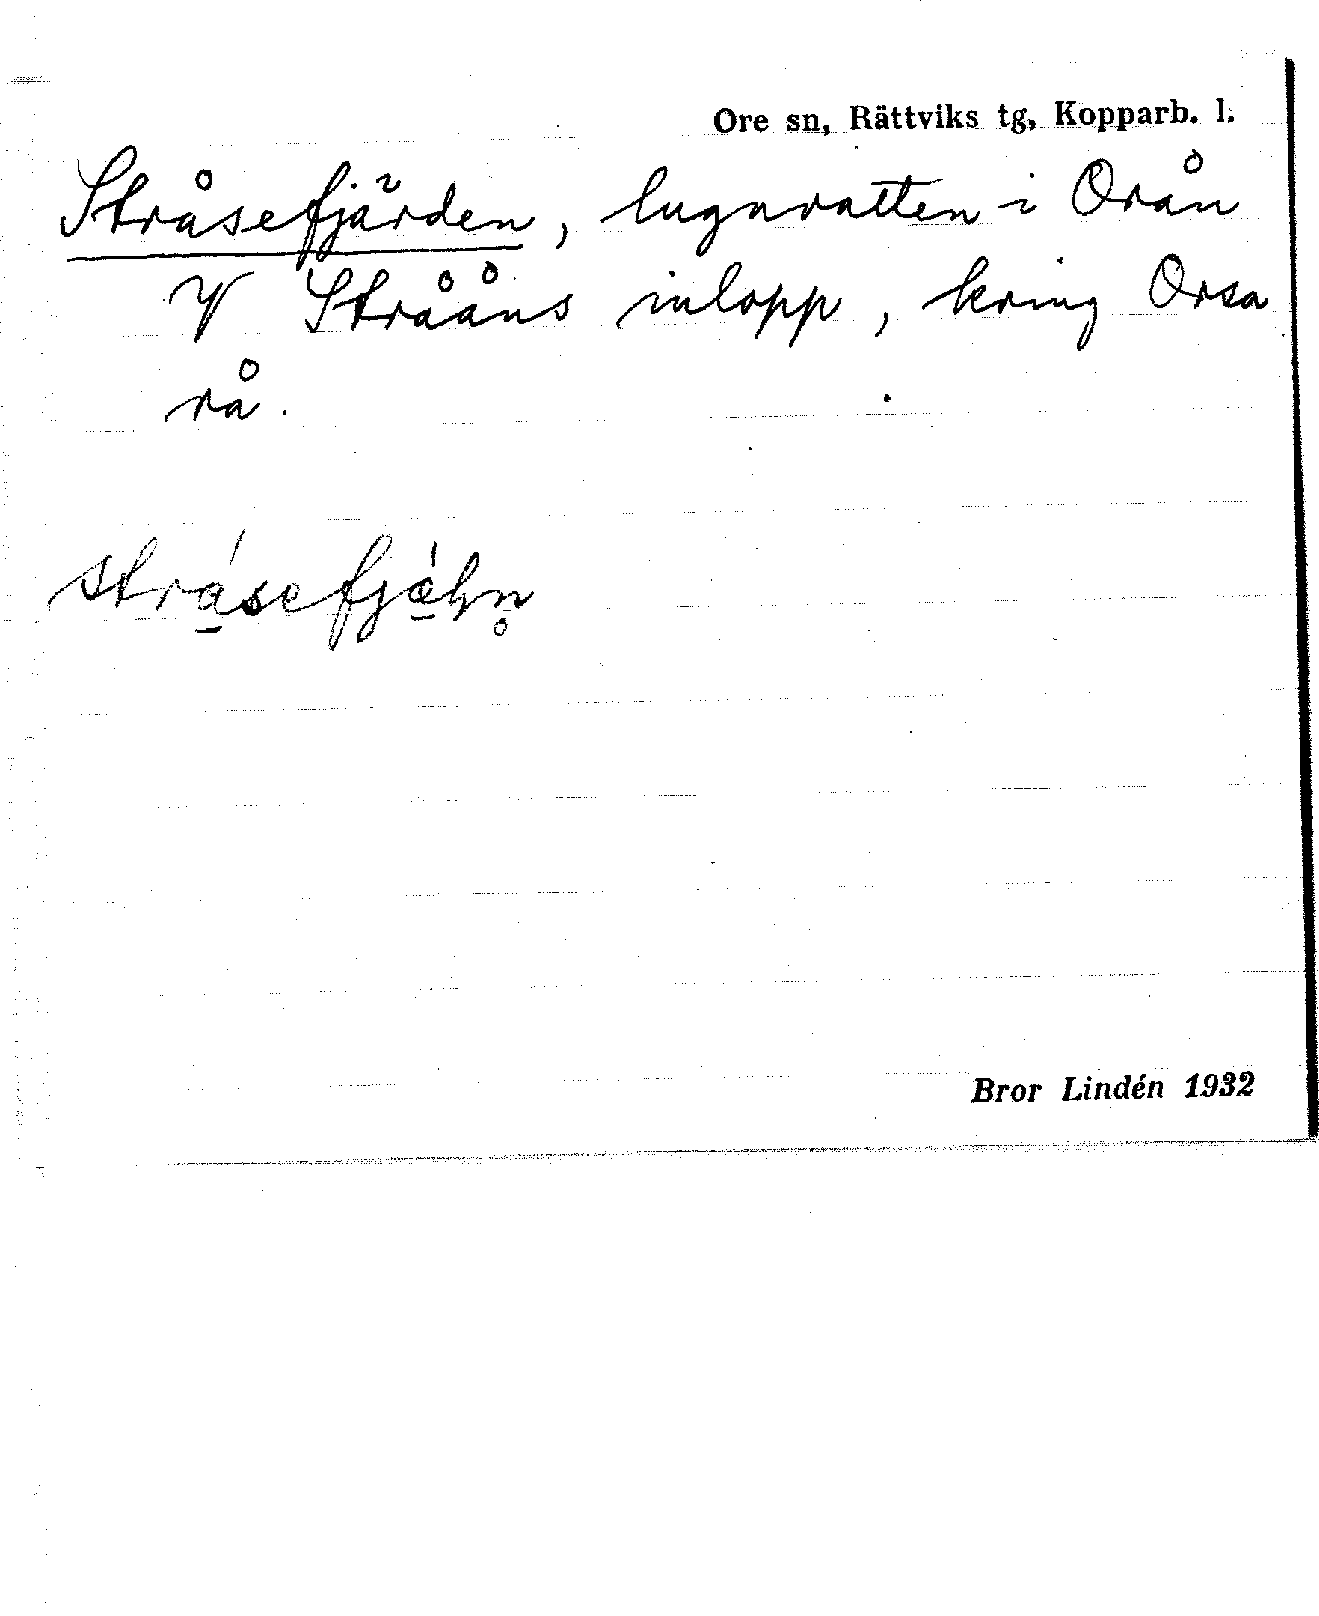 Ore sn, Rättviks tg, Kopparb. l.
Stråsefjärden, lugnvatten i Orån
V Strååns inlopp, kring Orsa
rå.
Bror Lindén 1932